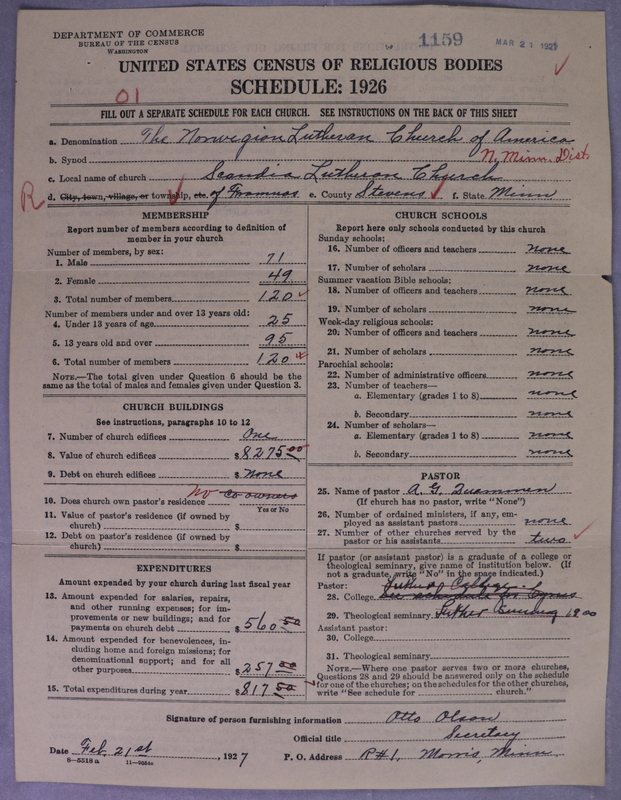 DEPARTMENT OF COMMERCE
BUREAU OF THE CENSUS
WASHINGTON
1159
MAR 21 1927
UNITED STATES CENSUS OF RELIGIOUS BODIES
SCHEDULE: 1926
01
FILL OUT A SEPARATE SCHEDULE FOR EACH CHURCH. SEE INSTRUCTIONS ON THE BACK OF THIS SHEET
a. Denomination The Norwegian Lutheran Church of America
b. Synod N. Minn. Dist.
c. Local name of church Scandia Lutheran Church
R d. City, town, village, or township, etc. of Framnas e. County Stevens f. State Minn
MEMBERSHIP
Report number of members according to definition of
member in your church
Number of members, by sex:
1. Male 71
2. Female 49
3. Total number of members 120
Number of members under and over 13 years old:
4. Under 13 years of age 25
5. 13 years old and over 95
6. Total number of members 120
NOTE.—The total given under Question 6 should be the
same as the total of males and females given under Question 3.
CHURCH BUILDINGS
See instructions, paragraphs 10 to 12
7. Number of church edifices One
8. Value of church edifices $8275.00
9. Debt on church edifices $ None
10. Does church own pastor's residence No Co owners
Yes or No
11. Value of pastor's residence (if owned by
church) $
12. Debt on pastor's residence (if owned by
church) $
EXPENDITURES
Amount expended by your church during last fiscal year
13. Amount expended for salaries, repairs,
and other running expenses; for im-
provements or new buildings; and for
payments on church debt $560.50
14. Amount expended for benevolences, in-
cluding home and foreign missions; for
denominational support; and for all
other purposes $257.00
15. Total expenditures during year $817.50
CHURCH SCHOOLS
Report here only schools conducted by this church
Sunday schools:
16. Number of officers and teachers none
17. Number of scholars none
Summer vacation Bible schools:
18. Number of officers and teachers none
19. Number of scholars none
Week-day religious schools:
20. Number of officers and teachers none
21. Number of scholars none
Parochial schools:
22. Number of administrative officers none
23. Number of teachers—
a. Elementary (grades 1 to 8) none
b. Secondary none
24. Number of scholars—
a. Elementary (grades 1 to 8) none
b. Secondary none
PASTOR
25. Name of pastor A. G. Quammen
(If church has no pastor, write "None")
26. Number of ordained ministers, if any, em-
ployed as assistant pastors none
27. Number of other churches served by the
pastor or his assistants two
If pastor (or assistant pastor) is a graduate of a college or
theological seminary, give name of institution below. (If
not a graduate, write "No" in the space indicated.)
Pastor: Luther College
28. College See schedule for
29. Theological seminary Luther Seminary 1900
Assistant pastor:
30. College
31. Theological seminary
NOTE.—Where one pastor serves two or more churches,
Questions 28 and 29 should be answered only on the schedule
for one of the churches; on the schedules for the other churches,
write "See schedule for church."
Signature of person furnishing information Otto Olson
Official title Secretary
Date Feb. 21st, 1927 P. O. Address R#1, Morris, Minn.
8—5518 a